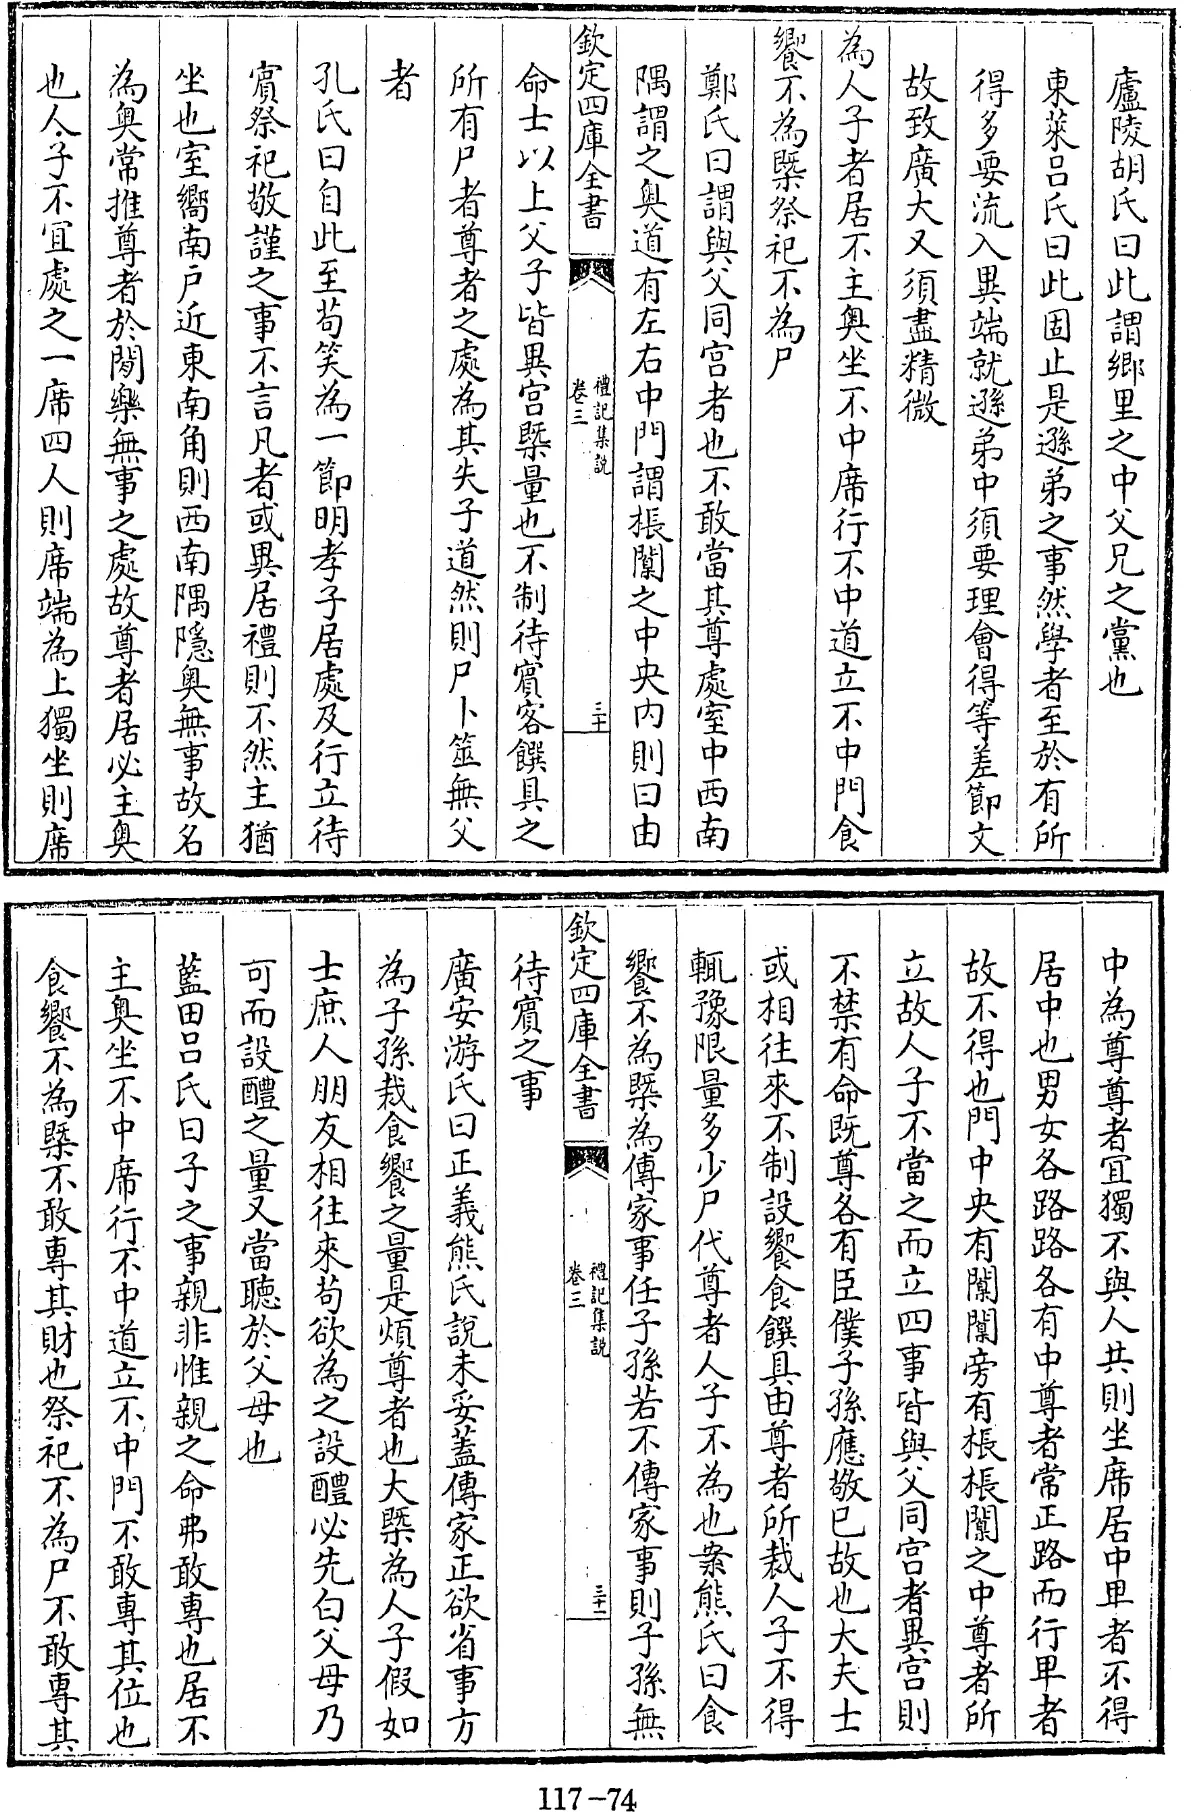 廬陵胡氏曰此謂鄉里之中父兄之黨也
東萊呂氏曰此固止是遜弟之事然學者至於有所
得多要流入異端就遜弟中須要理會得等差節文
故致廣大又須盡精微
為人子者居不主奥坐不中席行不中道立不中門食
饗不為槩祭祀不為尸
鄭氏曰謂與父同宫者也不敢當其尊處室中西南
隅謂之奥道有左右中門謂棖闑之中央内則曰由
欽定四庫全書
禮記集説
卷三
三十
命士以上父子皆異宫槩量也不制待賓客饌具之
所有尸者尊者之處為其失子道然則尸卜筮無父
者
孔氏曰自此至苟笑為一節明孝子居處及行立待
賓祭祀敬謹之事不言凡者或異居禮則不然主猶
坐也室嚮南户近東南角則西南隅隱奥無事故名
為奥常推尊者於閒樂無事之處故尊者居必主奥
也人子不宜處之一席四人則席端為上獨坐則席
中為尊尊者宜獨不與人共則坐席居中卑者不得
居中也男女各路路各有中尊者常正路而行卑者
故不得也門中央有闑闑旁有棖棖闑之中尊者所
立故人子不當之而立四事皆與父同宫者異宫則
不禁有命既尊各有臣僕子孫應敬已故也大夫士
或相往來不制設饗食饌具由尊者所裁人子不得
輒豫限量多少尸代尊者人子不為也案熊氏曰食
饗不為槩為傳家事任子孫若不傳家事則子孫無
欽定四庫全書
禮記集説
卷三
三十一
待賓之事
廣安游氏曰正義熊氏說未妥蓋傳家正欲省事方
為子孫裁食饗之量是煩尊者也大槩為人子假如
士庶人朋友相往來苟欲為之設醴必先白父母乃
可而設醴之量又當聽於父母也
藍田呂氏曰子之事親非惟親之命弗敢專也居不
主奥坐不中席行不中道立不中門不敢專其位也
食饗不為槩不敢專其財也祭祀不為尸不敢專其
117-74